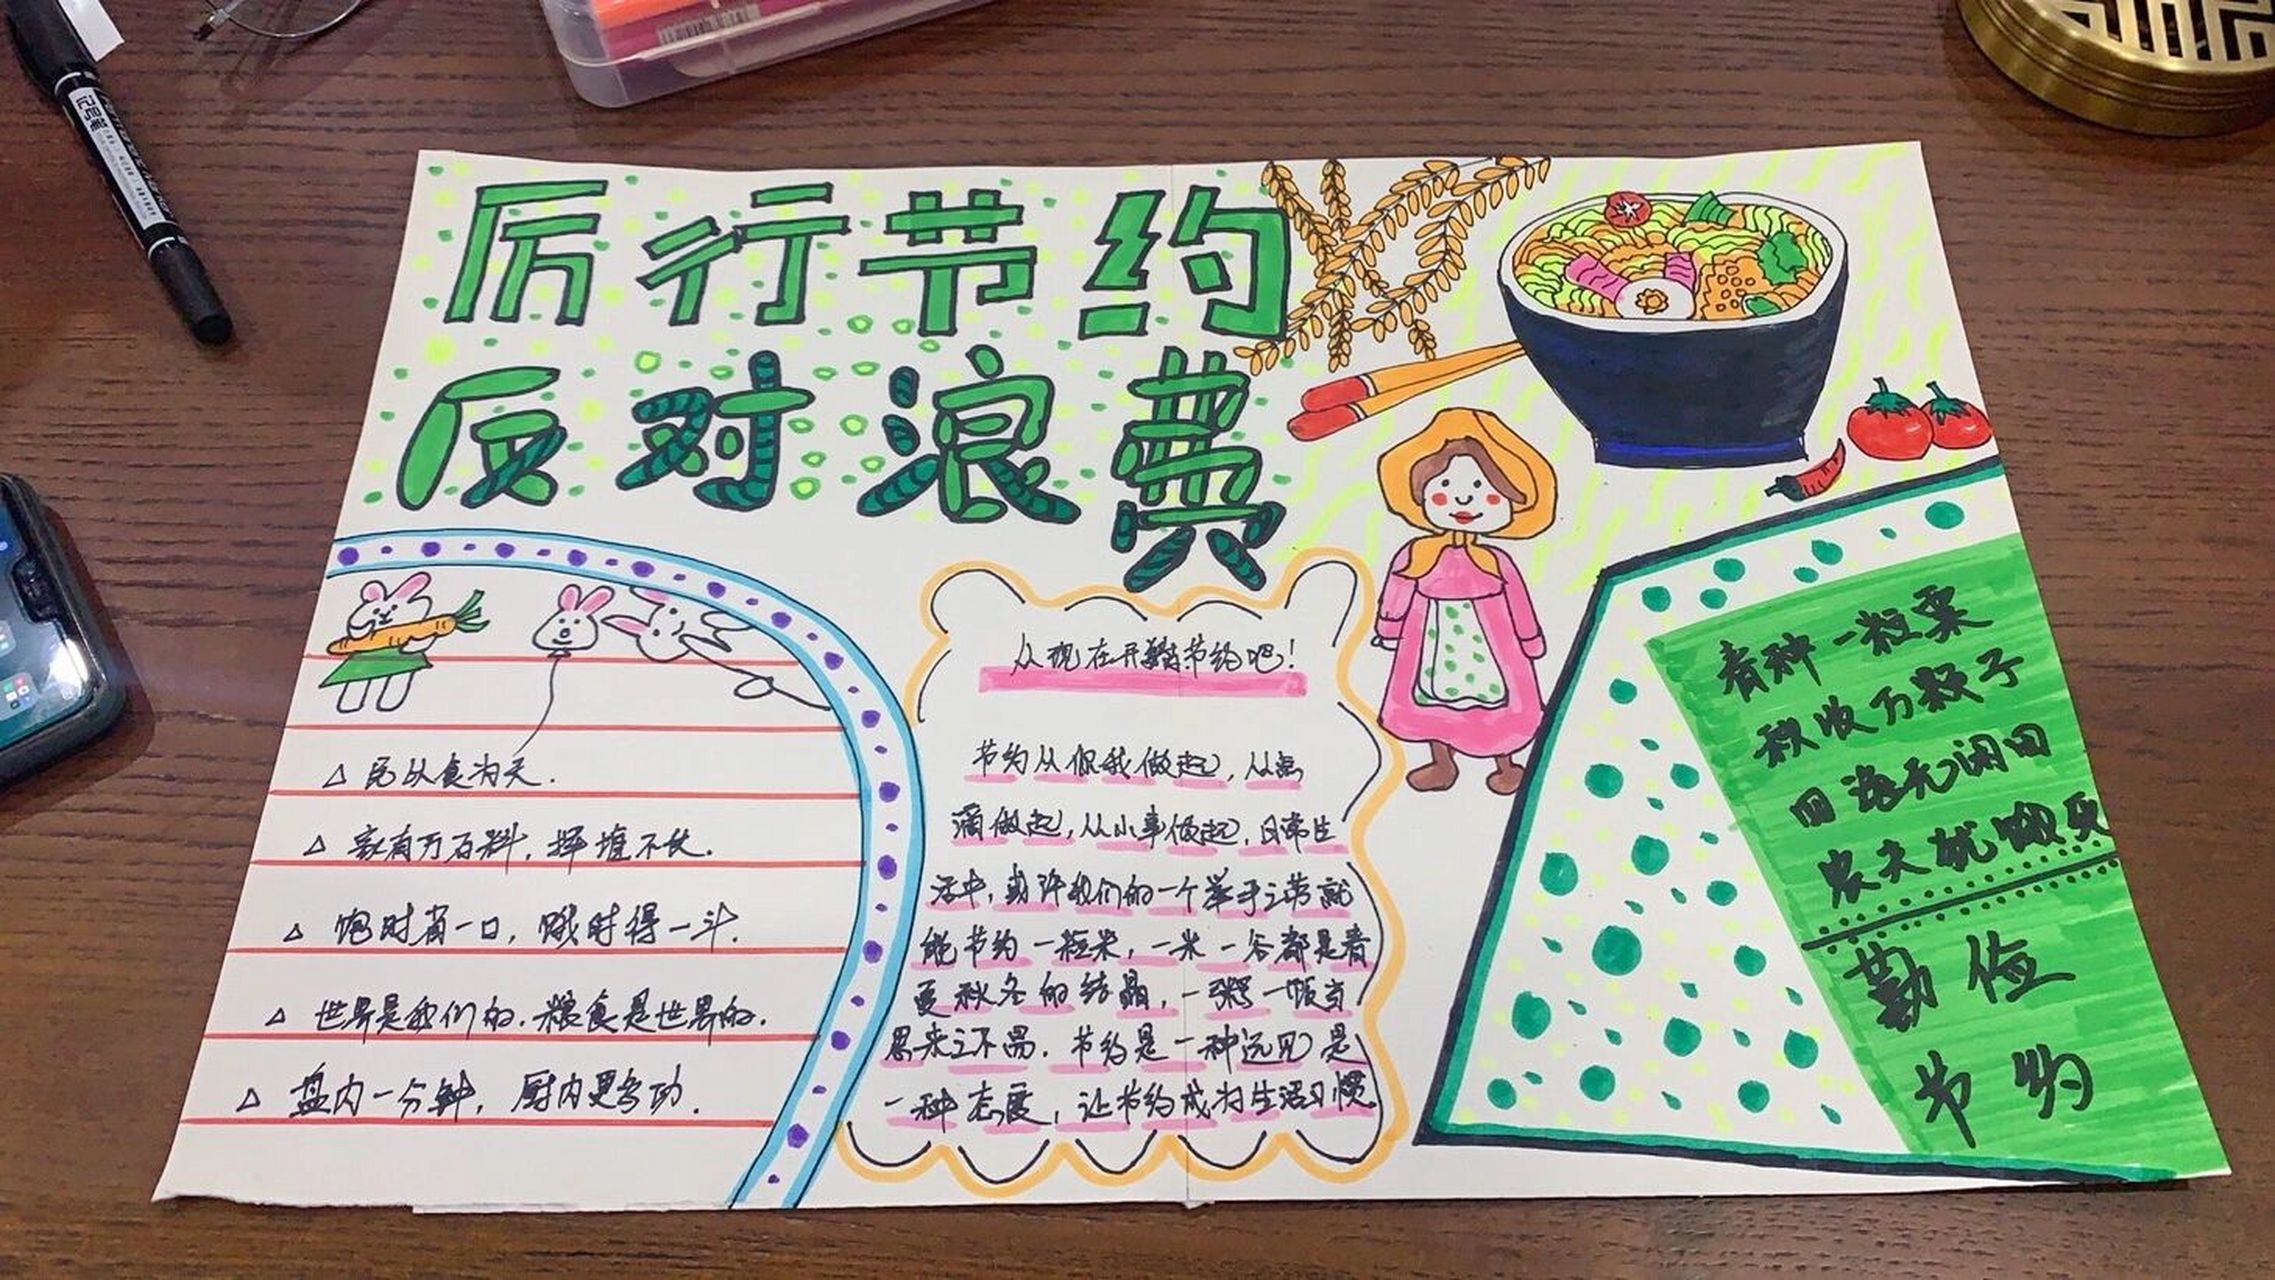 厉行节约
反对浪费
从现在开始节约吧!
△ 民以食为天.
△ 家有万石料, 挥堆不长.
△ 饱时省一口, 饿时得一斗.
△ 世界是我们的. 粮食是世界的.
△ 盘内一分钟, 厨内更多功.
节约从你我做起, 从点
滴做起, 从小事做起, 日常生
活中, 或许我们的一个举手之劳就
能节约一粒米, 一米一谷都是春
夏秋冬的结晶, 一粥一饭当
思来之不易. 节约是一种远见是
一种态度, 让节约成为生活习惯.
春种一粒粟
秋收万颗子
四海无闲田
农夫犹饿死
勤俭
节约
记号笔